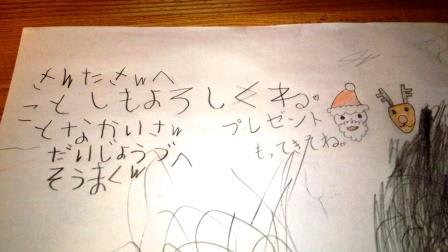 さんたさんへ
ことしもよろしくね。
となかいさん
だいじょうづへ
そうまくん
プレゼント
もってきてね。